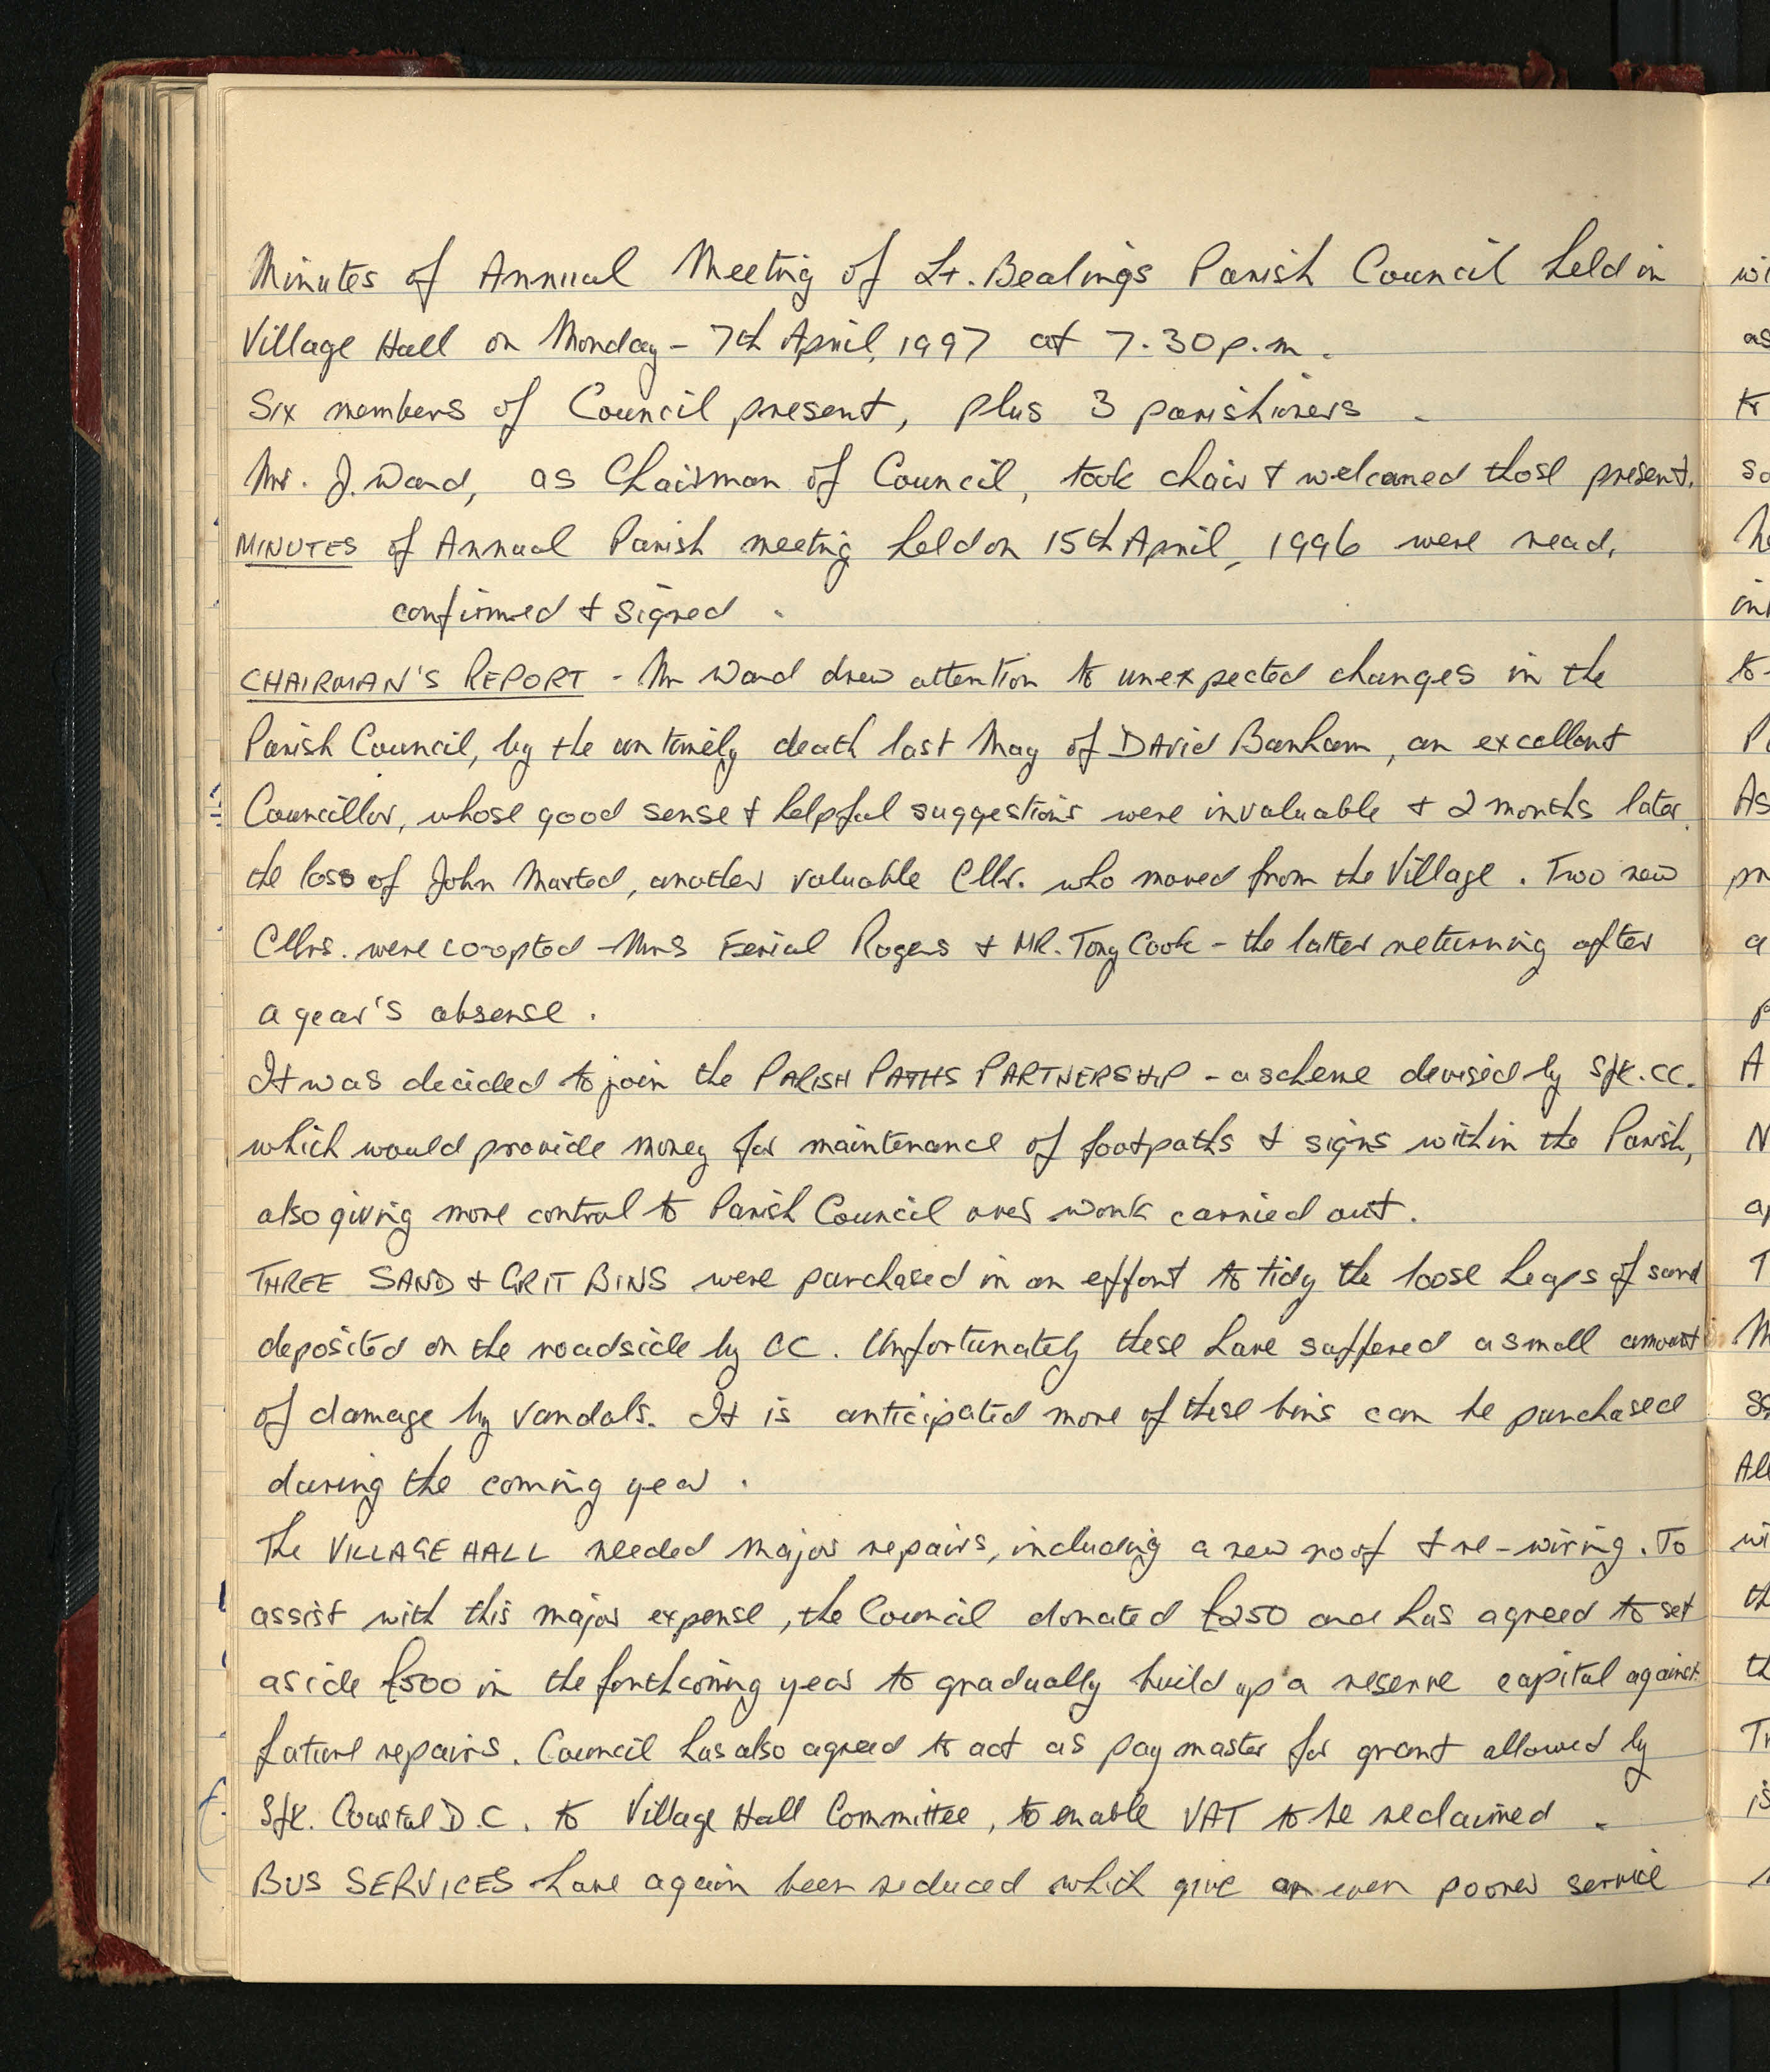 Minutes of Annual Meeting of Lt. Bealings Parish Council held in
Village Hall on Monday - 7th April, 1997 at 7.30 p.m.
Six members of Council present, plus 3 parishioners.
Mr. J. Ward, as Chairman of Council, took chair & welcomed those present.
MINUTES of Annual Parish meeting held on 15th April, 1996 were read,
confirmed & signed.
CHAIRMAN'S REPORT - Mr Ward drew attention to unexpected changes in the
Parish Council, by the untimely death last May of David Banham, an excellent
Councillor, whose good sense & helpful suggestions were invaluable & 2 months later
the loss of John , another valuable Cllr. who moved from the Village. Two new
Cllrs. were co-opted - Mrs Ferial Rogers & MR. Tony Cook - the latter returning after
a year's absense.
It was decided to join the PARISH PATHS PARTNERSHIP - a scheme devised by Sfk. CC.
which would provide money for maintenance of footpaths & signs within the Parish,
also giving more control to Parish Council over work carried out.
THREE SAND & GRIT BINS were purchased in an effort to tidy the loose heaps of sand
deposited on the roadside by CC. Unfortunately these have suffered a small amount
of damage by vandals. It is anticipated more of these bins can be purchased
during the coming year.
The VILLAGE HALL needed major repairs, including a new roof & re-wiring. To
assist with this major expense, the Council donated £250 and has agreed to set
aside £500 in the forthcoming year to gradually build up a reserve capital against
future repairs. Council has also agreed to act as paymaster for grant allowed by
Sfk. Coastal D.C. to Village Hall Committee, to enable VAT to be reclaimed.
BUS SERVICES have again been reduced which give an even poorer service